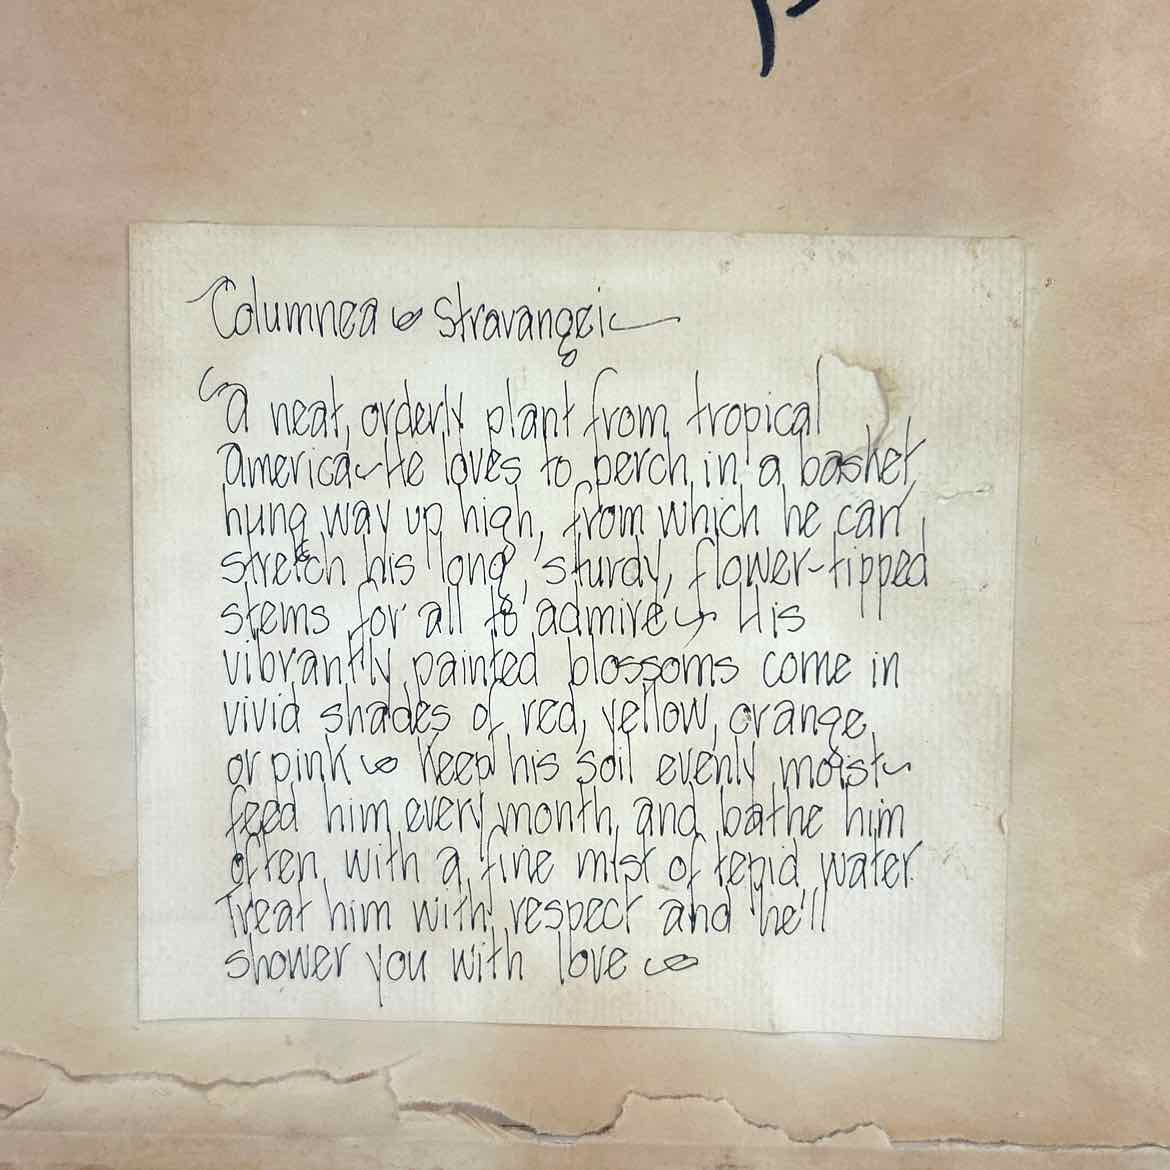 Columnea Stravangei
a neat, orderly plant from tropical
america~He loves to perch in a basket
hung way up high, from which he can
stretch his long, sturdy, flower-tipped
stems for all to admire His
vibrantly painted blossoms come in
vivid shades of red, yellow, orange
or pink Keep his soil evenly moist~
feed him every month, and bathe him
often with a fine mist of tepid water.
Treat him with respect and he'll
shower you with love